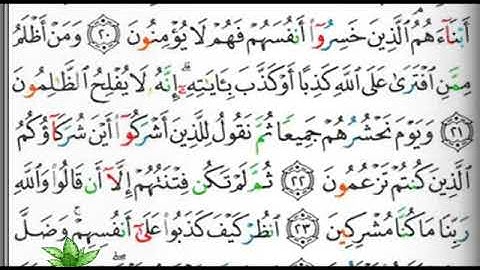 أَبۡنَآءَهُمُ ٱلَّذِينَ خَسِرُوٓاْ أَنفُسَهُمۡ فَهُمۡ لَا يُؤۡمِنُونَ ٢٠ وَمَنۡ أَظۡلَمُ
مِمَّنِ ٱفۡتَرَىٰ عَلَى ٱللَّهِ كَذِبًا أَوۡ كَذَّبَ بِـَٔايَٰتِهِۦٓۚ إِنَّهُۥ لَا يُفۡلِحُ ٱلظَّٰلِمُونَ
٢١ وَيَوۡمَ نَحۡشُرُهُمۡ جَمِيعٗا ثُمَّ نَقُولُ لِلَّذِينَ أَشۡرَكُوٓاْ أَيۡنَ شُرَكَآؤُكُمُ
ٱلَّذِينَ كُنتُمۡ تَزۡعُمُونَ ٢٢ ثُمَّ لَمۡ تَكُن فِتۡنَتُهُمۡ إِلَّآ أَن قَالُواْ وَٱللَّهِ
رَبِّنَا مَا كُنَّا مُشۡرِكِينَ ٢٣ ٱنظُرۡ كَيۡفَ كَذَبُواْ عَلَىٰٓ أَنفُسِهِمۡۚ وَضَلَّ